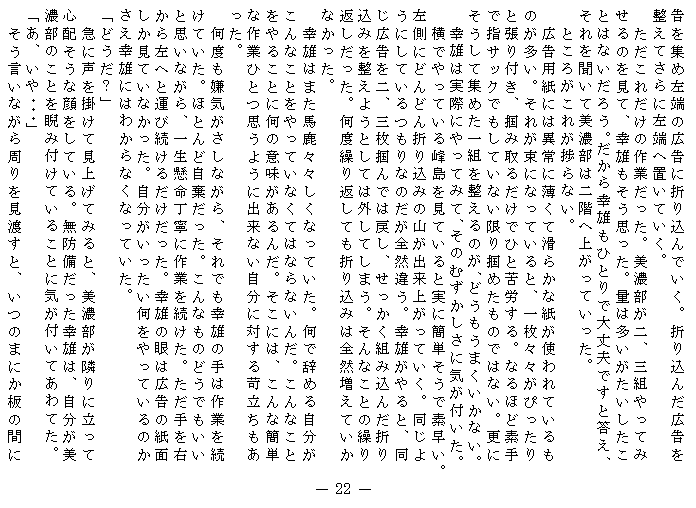 告を集め左端の広告に折り込んでいく。折り込んだ広告を
整えてさらに左端へ置いていく。
　ただこれだけの作業だった。美濃部が二、三組やってみ
せるのを見て、幸雄もそう思った。量は多いがたいしたこ
とはないだろう。だから幸雄もひとりで大丈夫ですと答え、
それを聞いて美濃部は二階へ上がっていった。
　ところがこれが捗らない。
　広告用紙には異常に薄くて滑らかな紙が使われているも
のが多い。それが束になっていると、一枚々々がぴったり
と張り付き、掴み取るだけでひと苦労する。なるほど素手
で指サックでもしていない限り掴めたものではない。更に
そうして集めた一組を整えるのが、どうもうまくいかない。
　幸雄は実際にやってみて、そのむずかしさに気が付いた。
　横でやっている峰島を見ていると実に簡単そうで素早い。
左側にどんどん折り込みの山が出来上がっていく。同じよ
うにしているつもりなのだが全然違う。幸雄がやると、同
じ広告を二、三枚掴んでは戻し、せっかく組み込んだ折り
込みを整えようとしては外してしまう。そんなことの繰り
返しだった。何度繰り返しても折り込みは全然増えていか
なかった。
　幸雄はまた馬鹿々々しくなっていた。何で辞める自分が
こんなことをやっていなくてはならないんだ。こんなこと
をやることに何の意味があるんだ。そこには、こんな簡単
な作業ひとつ思うように出来ない自分に対する苛立ちもあ
った。
　何度も嫌気がさしながら、それでも幸雄の手は作業を続
けていた。ほとんど自棄だった。こんなものどうでもいい
と思いながら、一生懸命丁寧に作業を続けた。ただ手を右
から左へと運び続けるだけだった。幸雄の眼は広告の紙面
しか見ていなかった。自分がいったい何をやっているのか
さえ幸雄にはわからなくなっていた。
「どうだ？」
　急に声を掛けて見上げてみると、美濃部が隣りに立って
心配そうな顔をしている。無防備だった幸雄は、自分が美
濃部のことを睨み付けていることに気が付いてあわてた。
「あ、いや・・」
　そう言いながら周りを見渡すと、いつのまにか板の間に
― 22 ―